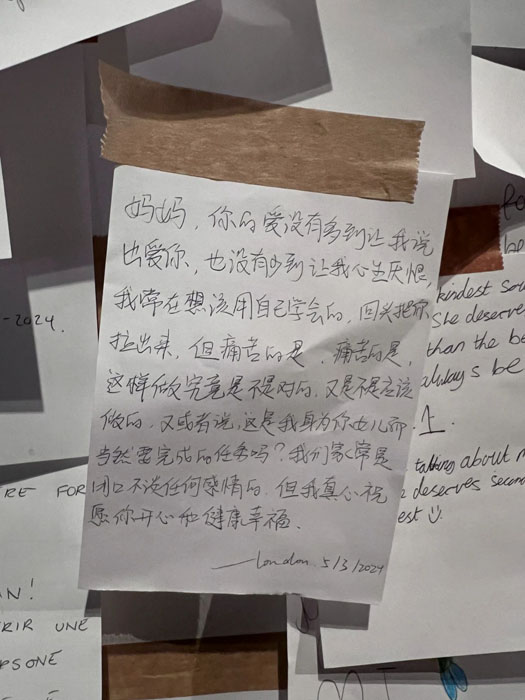 妈妈，你的爱没有多到让我说
出爱你，也没有少到让我心生厌恨，
我常在想该用自己学会的，回头把你
拉出来，但痛苦的是，痛苦的是，
这样做究竟是不是对的，又是不是应该
做的，又或者说，这是我身为你女儿而
当然要完成的任务吗？我们家常是
闭口不谈任何感情的，但我真心祝
愿你开心和健康幸福.
—London. 5/3/2024
-2024.
kindest
She deserve
than the be
always be
1.
talking about m
deserves second
est
RE FOR
N!
RIR UNE
PSONE